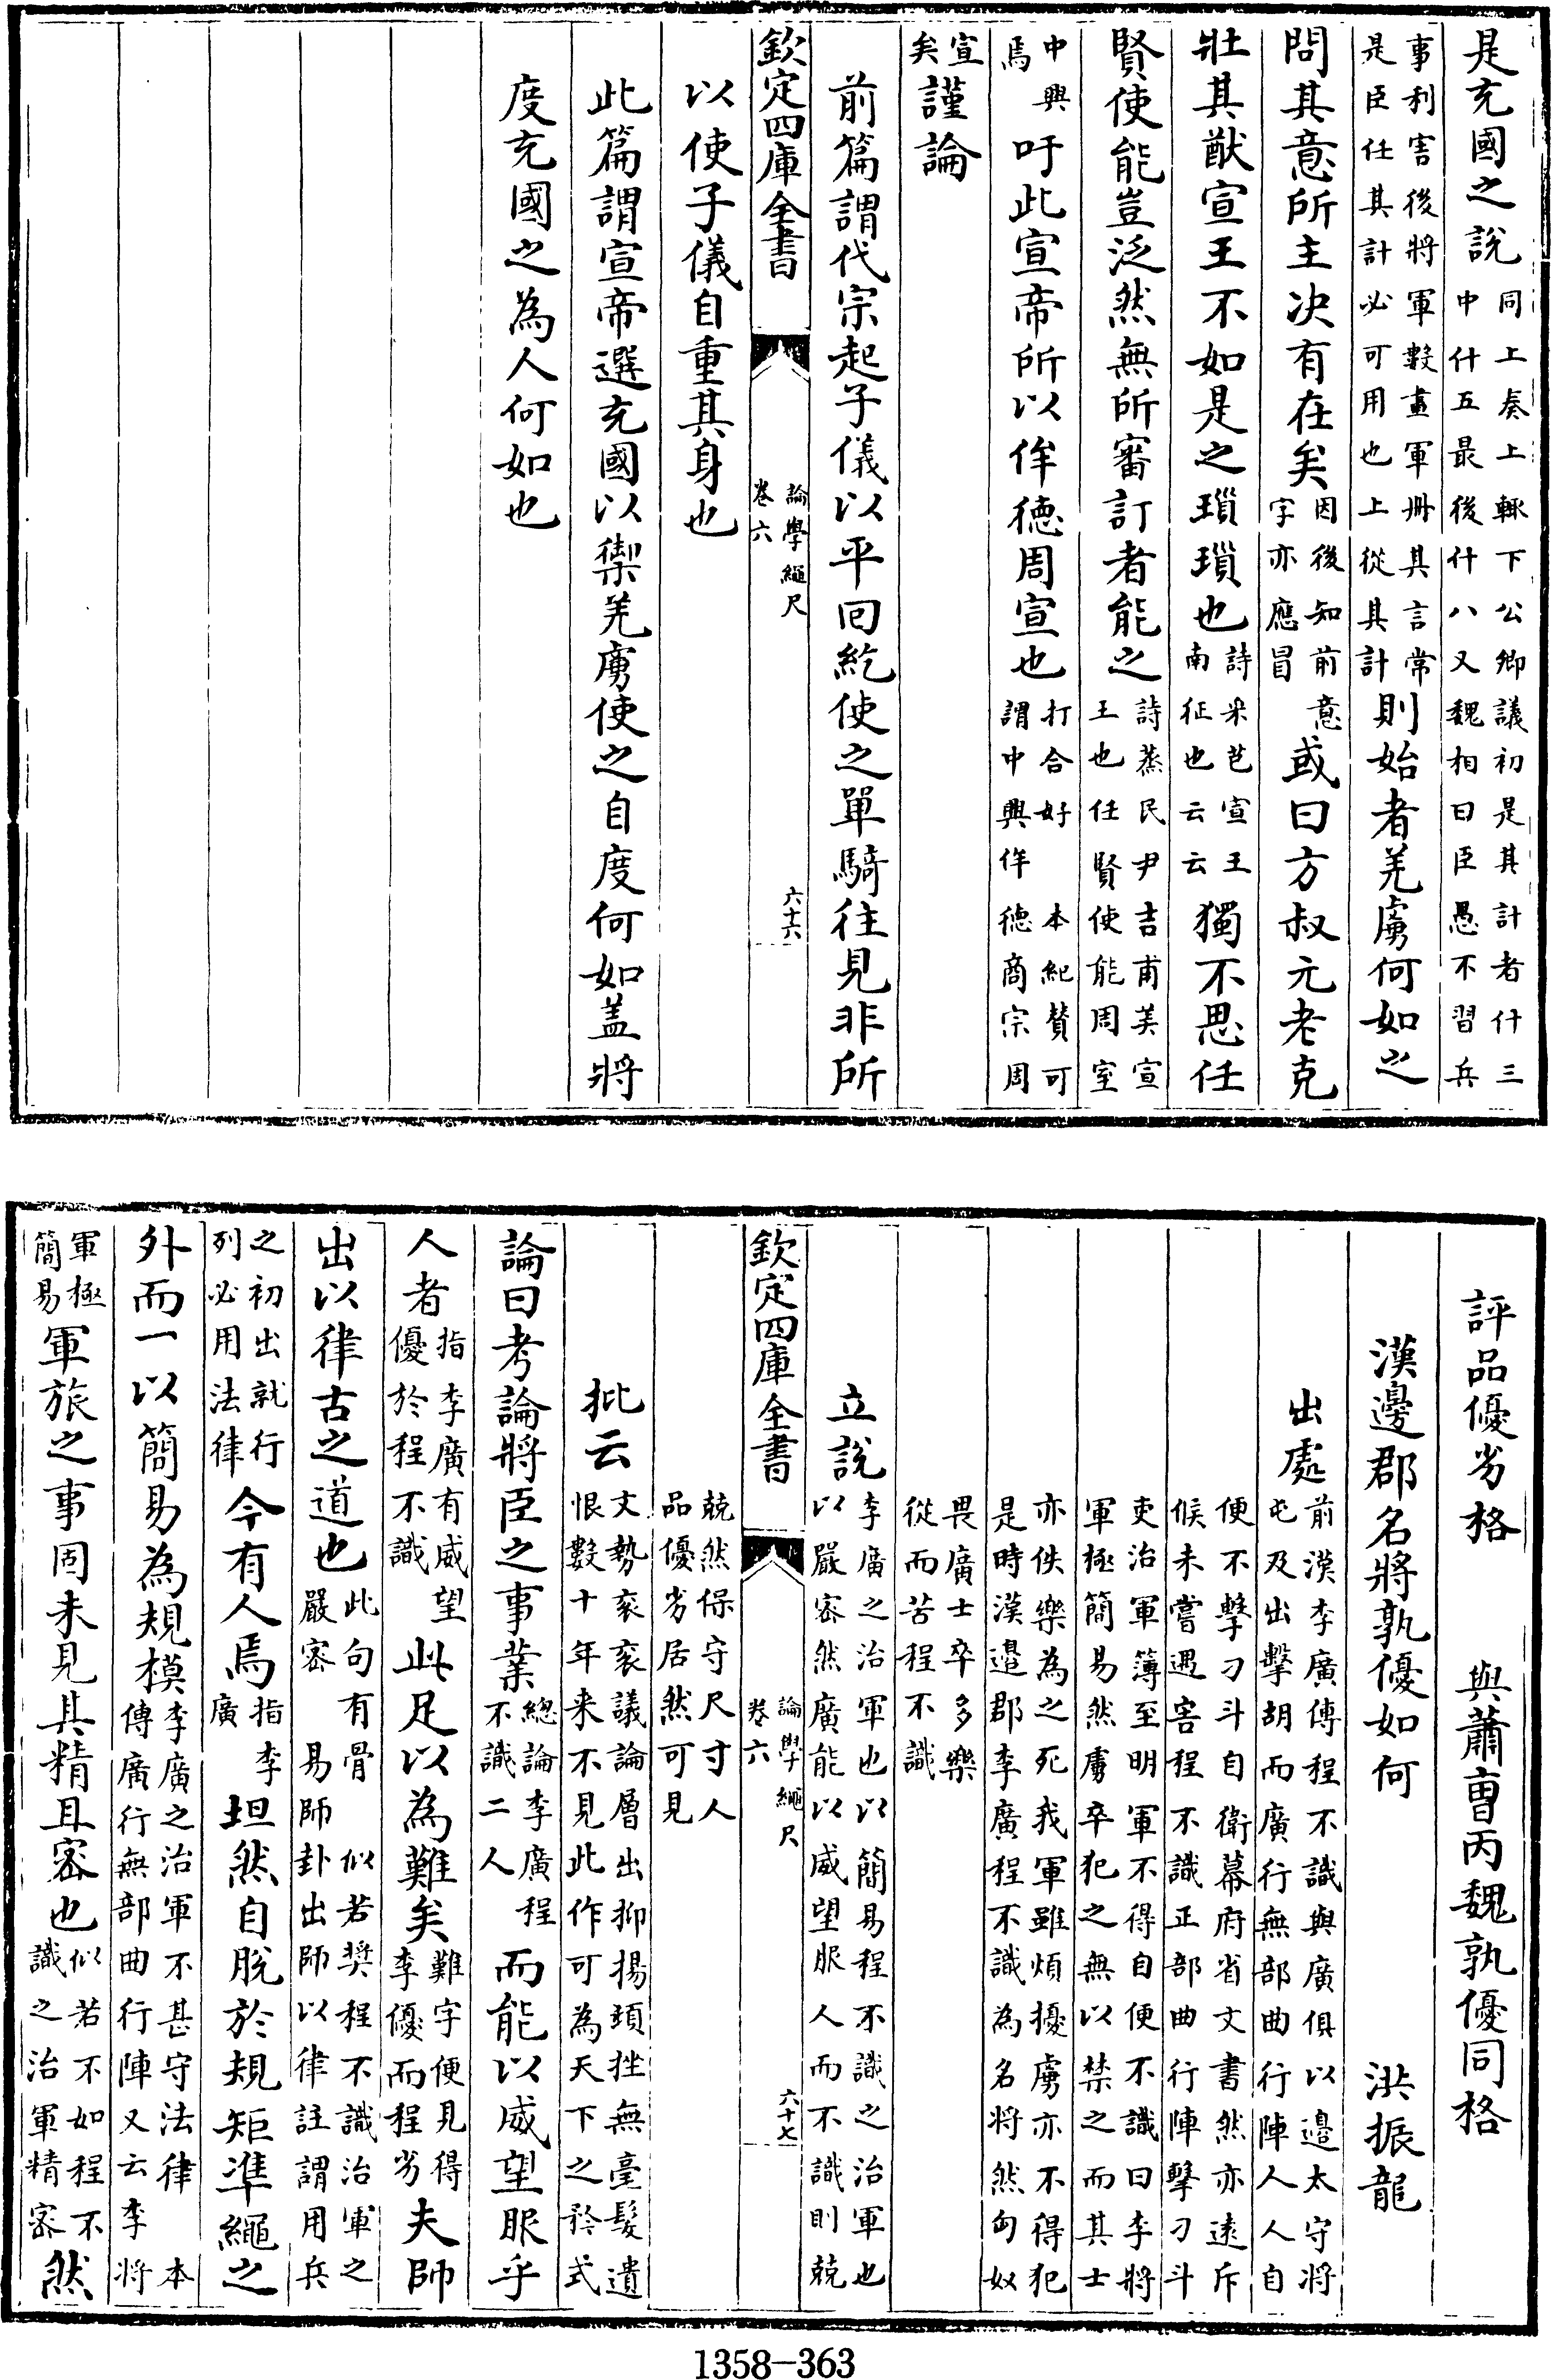 是充國之說同上奏上輙下公卿議初是其計者什三中什五最後什八又魏相曰臣愚不習兵
事利害後將軍數畫軍冊其言常是臣任其計必可用也上從其計則始者羌虜何如之
問其意所主决有在矣因後知前意字亦應冒或曰方叔元老克
壯其猷宣王不如是之瑣瑣也詩采芑宣王南征也云云獨不思任
賢使能豈泛然無所審訂者能之詩蒸民尹吉甫美宣王也任賢使能周室
中興焉吁此宣帝所以侔德周宣也打合好本紀賛可謂中興侔德商宗周
宣矣謹論
前篇謂代宗起子儀以平回紇使之單騎往見非所
欽定四庫全書 論學繩尺卷六 六十六
以使子儀自重其身也
此篇謂宣帝選充國以禦羌虜使之自度何如盖將
度充國之為人何如也
評品優劣格 與蕭曹丙魏孰優同格
漢邊郡名將孰優如何 洪振龍
出處前漢李廣傳程不識與廣俱以邊太守將屯及出擊胡而廣行無部曲行陣人人自
便不擊刁斗自衛幕府省文書然亦遠斥候未嘗遇害程不識正部曲行陣擊刁斗
吏治軍簿至明軍不得自便不識曰李將軍極簡易然虜卒犯之無以禁之而其士
亦佚樂為之死我軍雖煩擾虜亦不得犯是時漢邉郡李廣程不識為名將然匈奴
畏廣士卒多樂從而苦程不識
立說李廣之治軍也以簡易程不識之治軍也以嚴密然廣能以威望服人而不識則兢
欽定四庫全書 論學繩尺卷六 六十七
兢然保守尺寸人品優劣居然可見
批云文勢衮衮議論層出抑揚頭挫無毫髮遺恨數十年来不見此作可為天下之矜式
論曰考論將臣之事業總論李廣程不識二人而能以威望服乎
人者指李廣有威望優於程不識此足以為難矣難字便見得李優而程劣夫師
出以律古之道也此句有骨似若奬程不識治軍之嚴密易師卦出師以律註謂用兵
之初出就行列必用法律今有人焉指李廣坦然自脫於規矩準繩之
外而一以簡易為規模李廣之治軍不甚守法律本傳廣行無部曲行陣又云李將
軍極簡易軍旅之事固未見其精且密也似若不如程不識之治軍精密然
1358-363